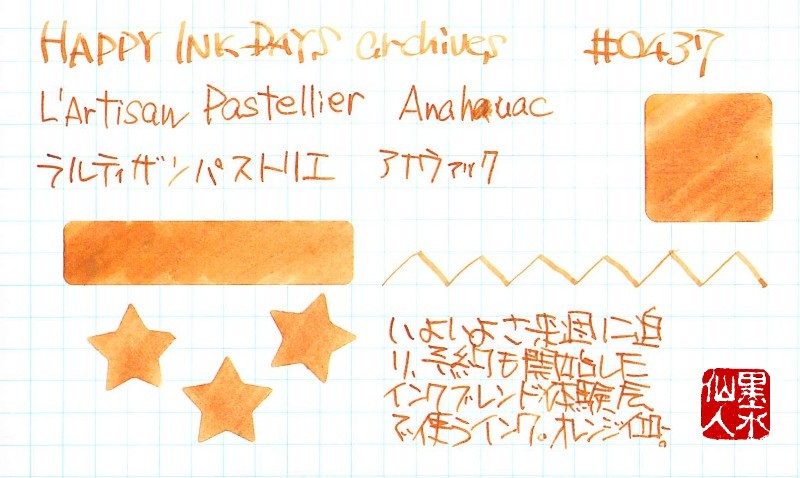 HAPPY INK DAYS archives #0437
L'Artisan Pastellier Anahauac
ラルティザンパストリエ アナウァック
いよいよさ来週に迫
り、予約も開始した
インクブレンド体験会
で使うインク。オレンジ色。
墨水
仙人